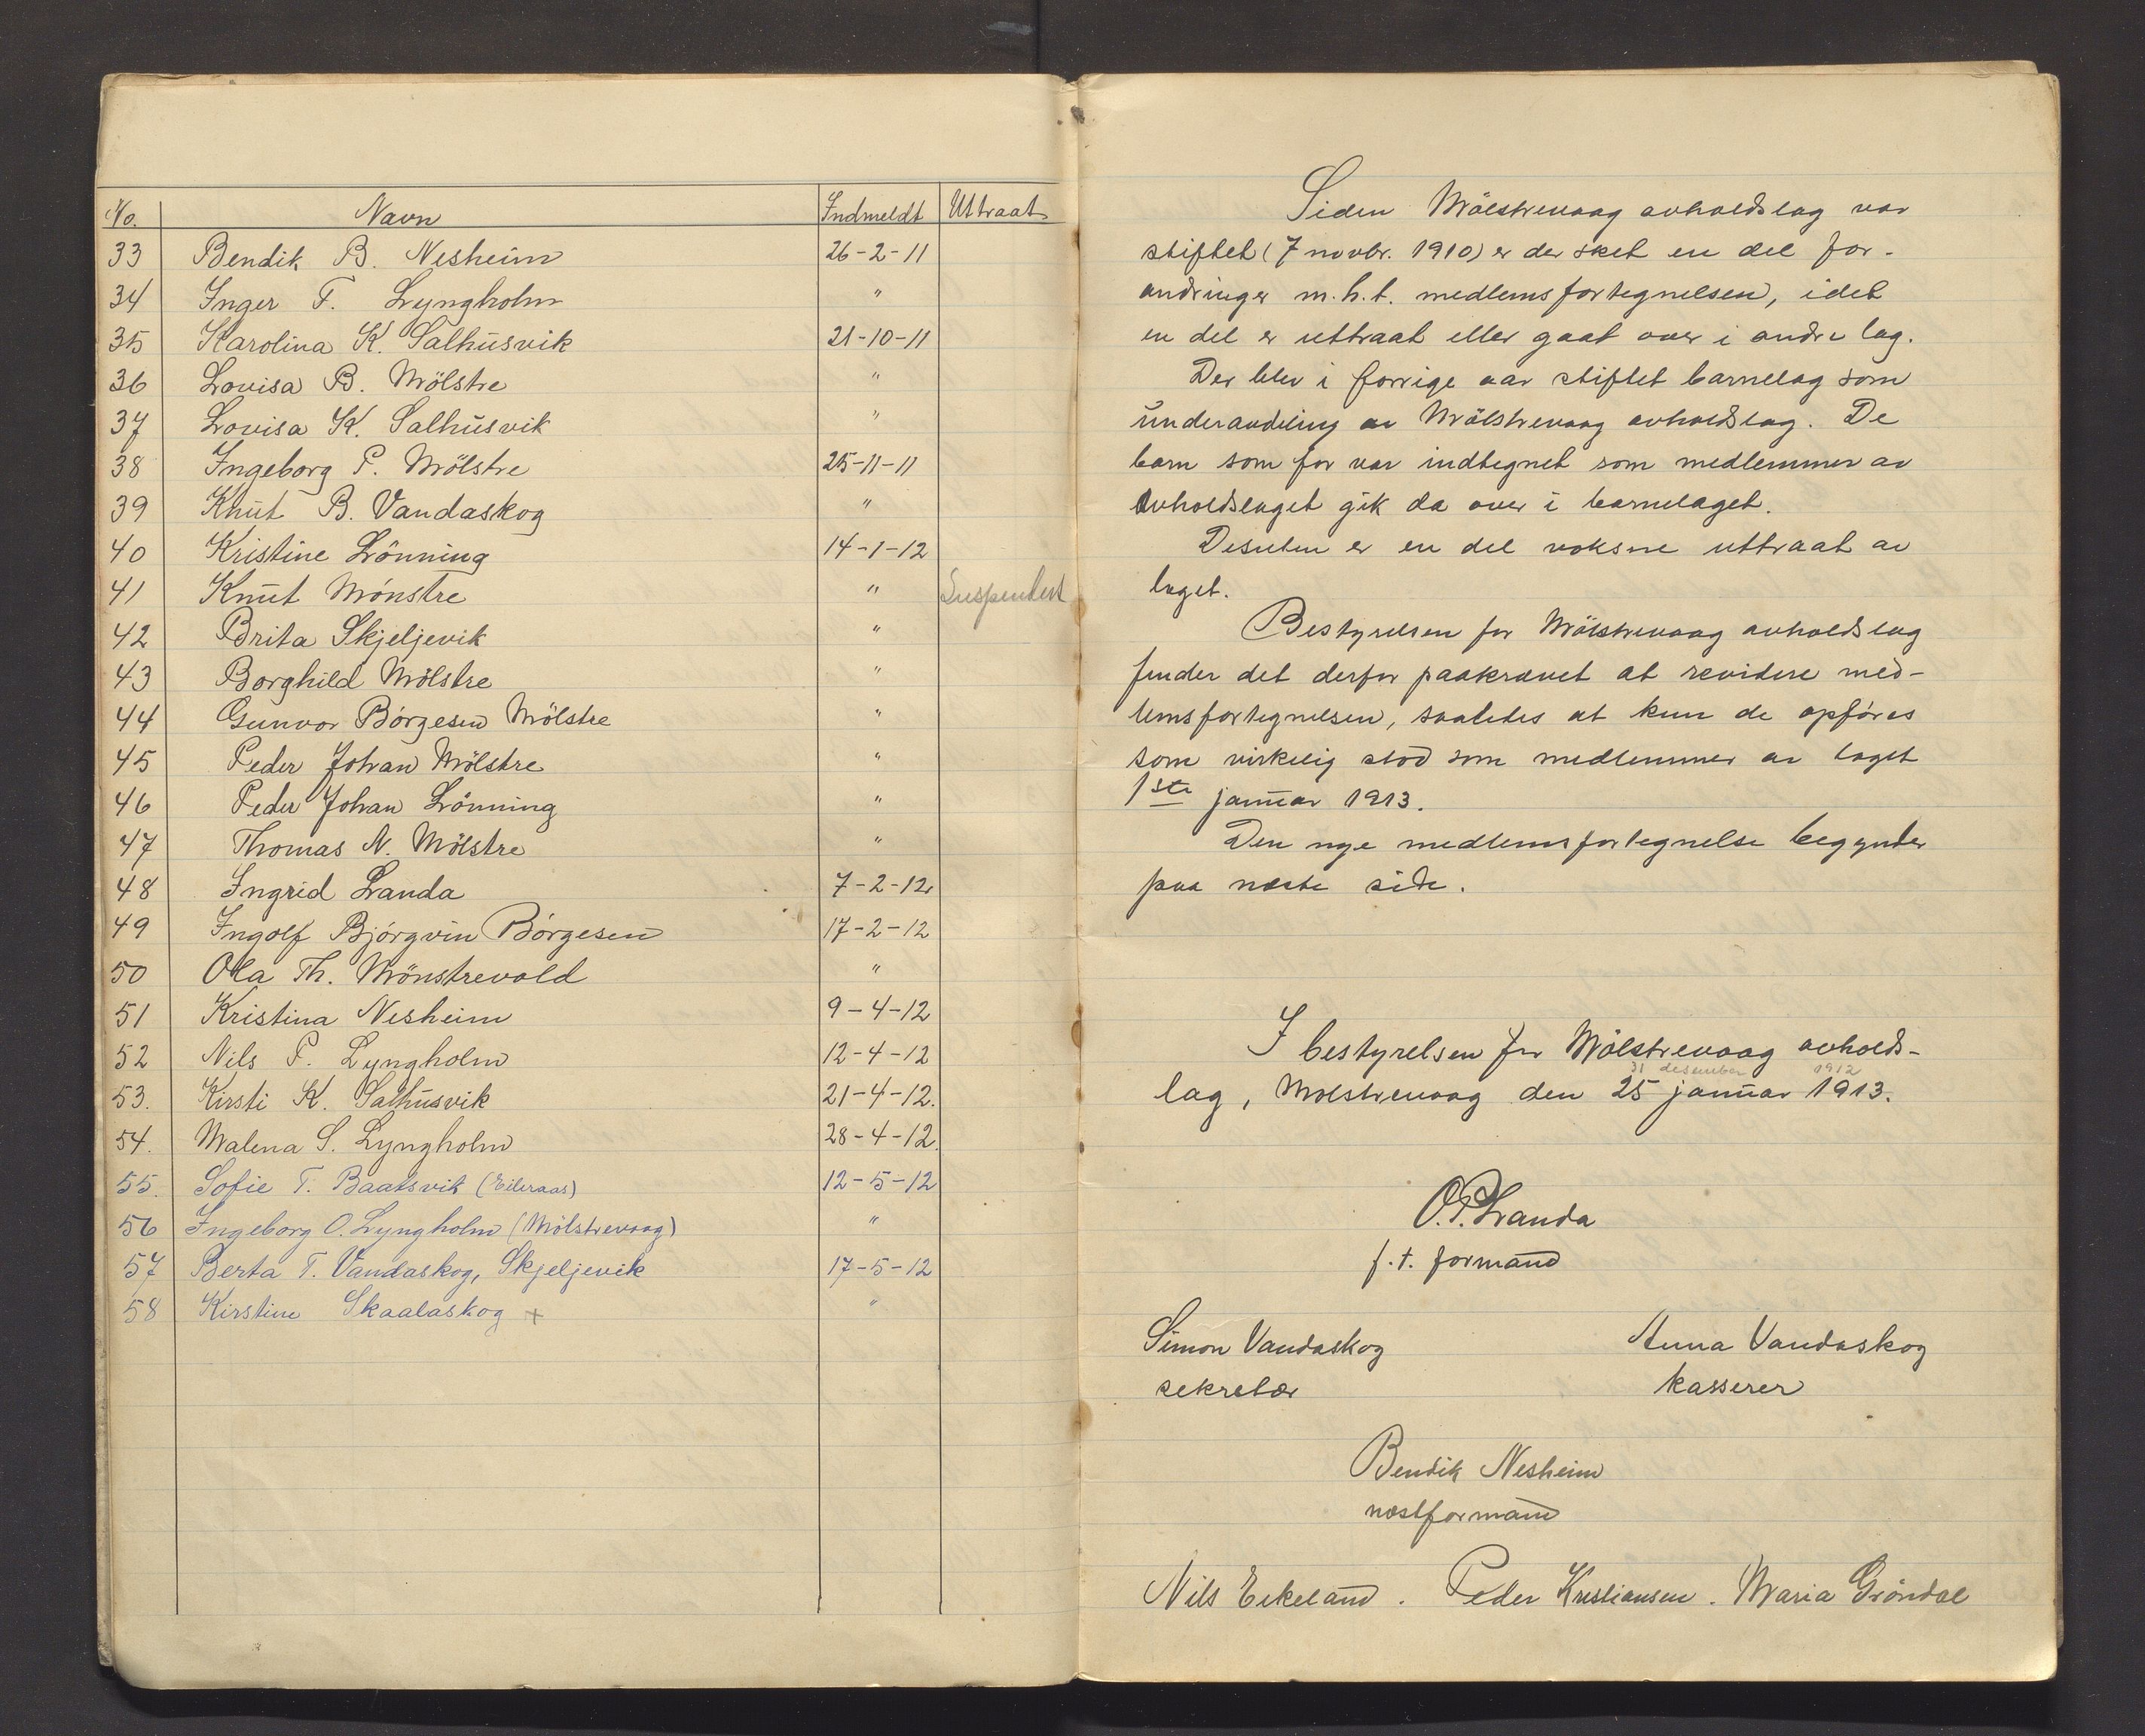 No. Navn Indmeldt Uttraat
33 Bendik B. Nesheim 26-2-11
34 Inger T. Lyngholm "
35 Karolina K. Salhusvik 21-10-11
36 Lovisa B. Mölstre "
37 Lovisa K. Salhusvik "
38 Ingeborg P. Mölstre 25-11-11
39 Knut B. Vandaskog "
40 Kristine Lönning 14-1-12
41 Knut Mönstre " Suspendert
42 Brita Skjeljevik "
43 Borghild Mölstre "
44 Gunvor Börgesen Mölstre "
45 Peder Johan Mölstre "
46 Peder Johan Lönning "
47 Thomas N. Mölstre "
48 Ingrid Landa 7-2-12
49 Ingolf Björgvin Börgesen 17-2-12
50 Ola Th. Mönstrevold "
51 Kristina Nesheim 9-4-12
52 Nils P. Lyngholm 12-4-12
53. Kirsti K. Salhusvik 21-4-12.
54. Malena S. Lyngholm 28-4-12.
55. Sofie T. Baatsvik (Eileraas) 12-5-12
56 Ingeborg O. Lyngholm (Mölstrevaag) "
57 Berta T. Vandaskog, Skjeljevik 17-5-12
58 Kirstine Skaalaskog + "
Siden Mölstrevaag avholdslag var
stiftet (7 novbr. 1910) er der sket en del for-
andringer m.h.t. medlemsfortegnelsen, idet
en del er uttraat eller gaat over i andre lag.
Der blev i forrige aar stiftet barnelag som
underavdeling av Mölstrevaag avholdslag. De
barn som før var indtegnet som medlemmer av
Avholdslaget gik da over i barnelaget.
Desuten er en del voksne uttraat av
laget.
Bestyrelsen for Mölstrevaag avholdslag
finder det derfor paakrævet at revidere med-
lemsfortegnelsen, saaledes at kun de opføres
som virkelig stod som medlemmer av laget
1ste januar 1913.
Den nye medlemsfortegnelse begynder
paa næste side.
I bestyrelsen for Mölstrevaag avholds-
31 desember 1912
lag, Mölstrevaag den 25 januar 1913.
O.P. Landa
f.t. formand
Simon Vandaskog Anna Vandaskog
sekretær kasserer
Bendik Nesheim
næstformand
Nils Eikeland. Peder Kristiansen. Maria Gröndal